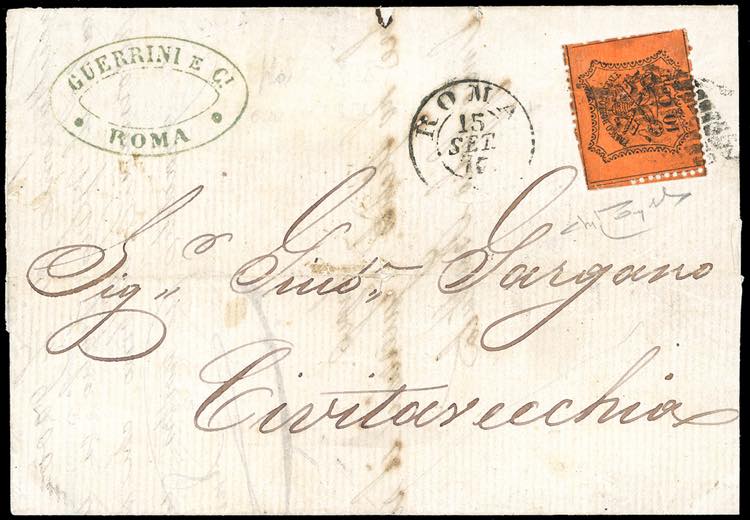 GUERRINI E C.
ROMA
ROMA
15
SET.
Sig.r Gius.e Gargano
Civitavecchia